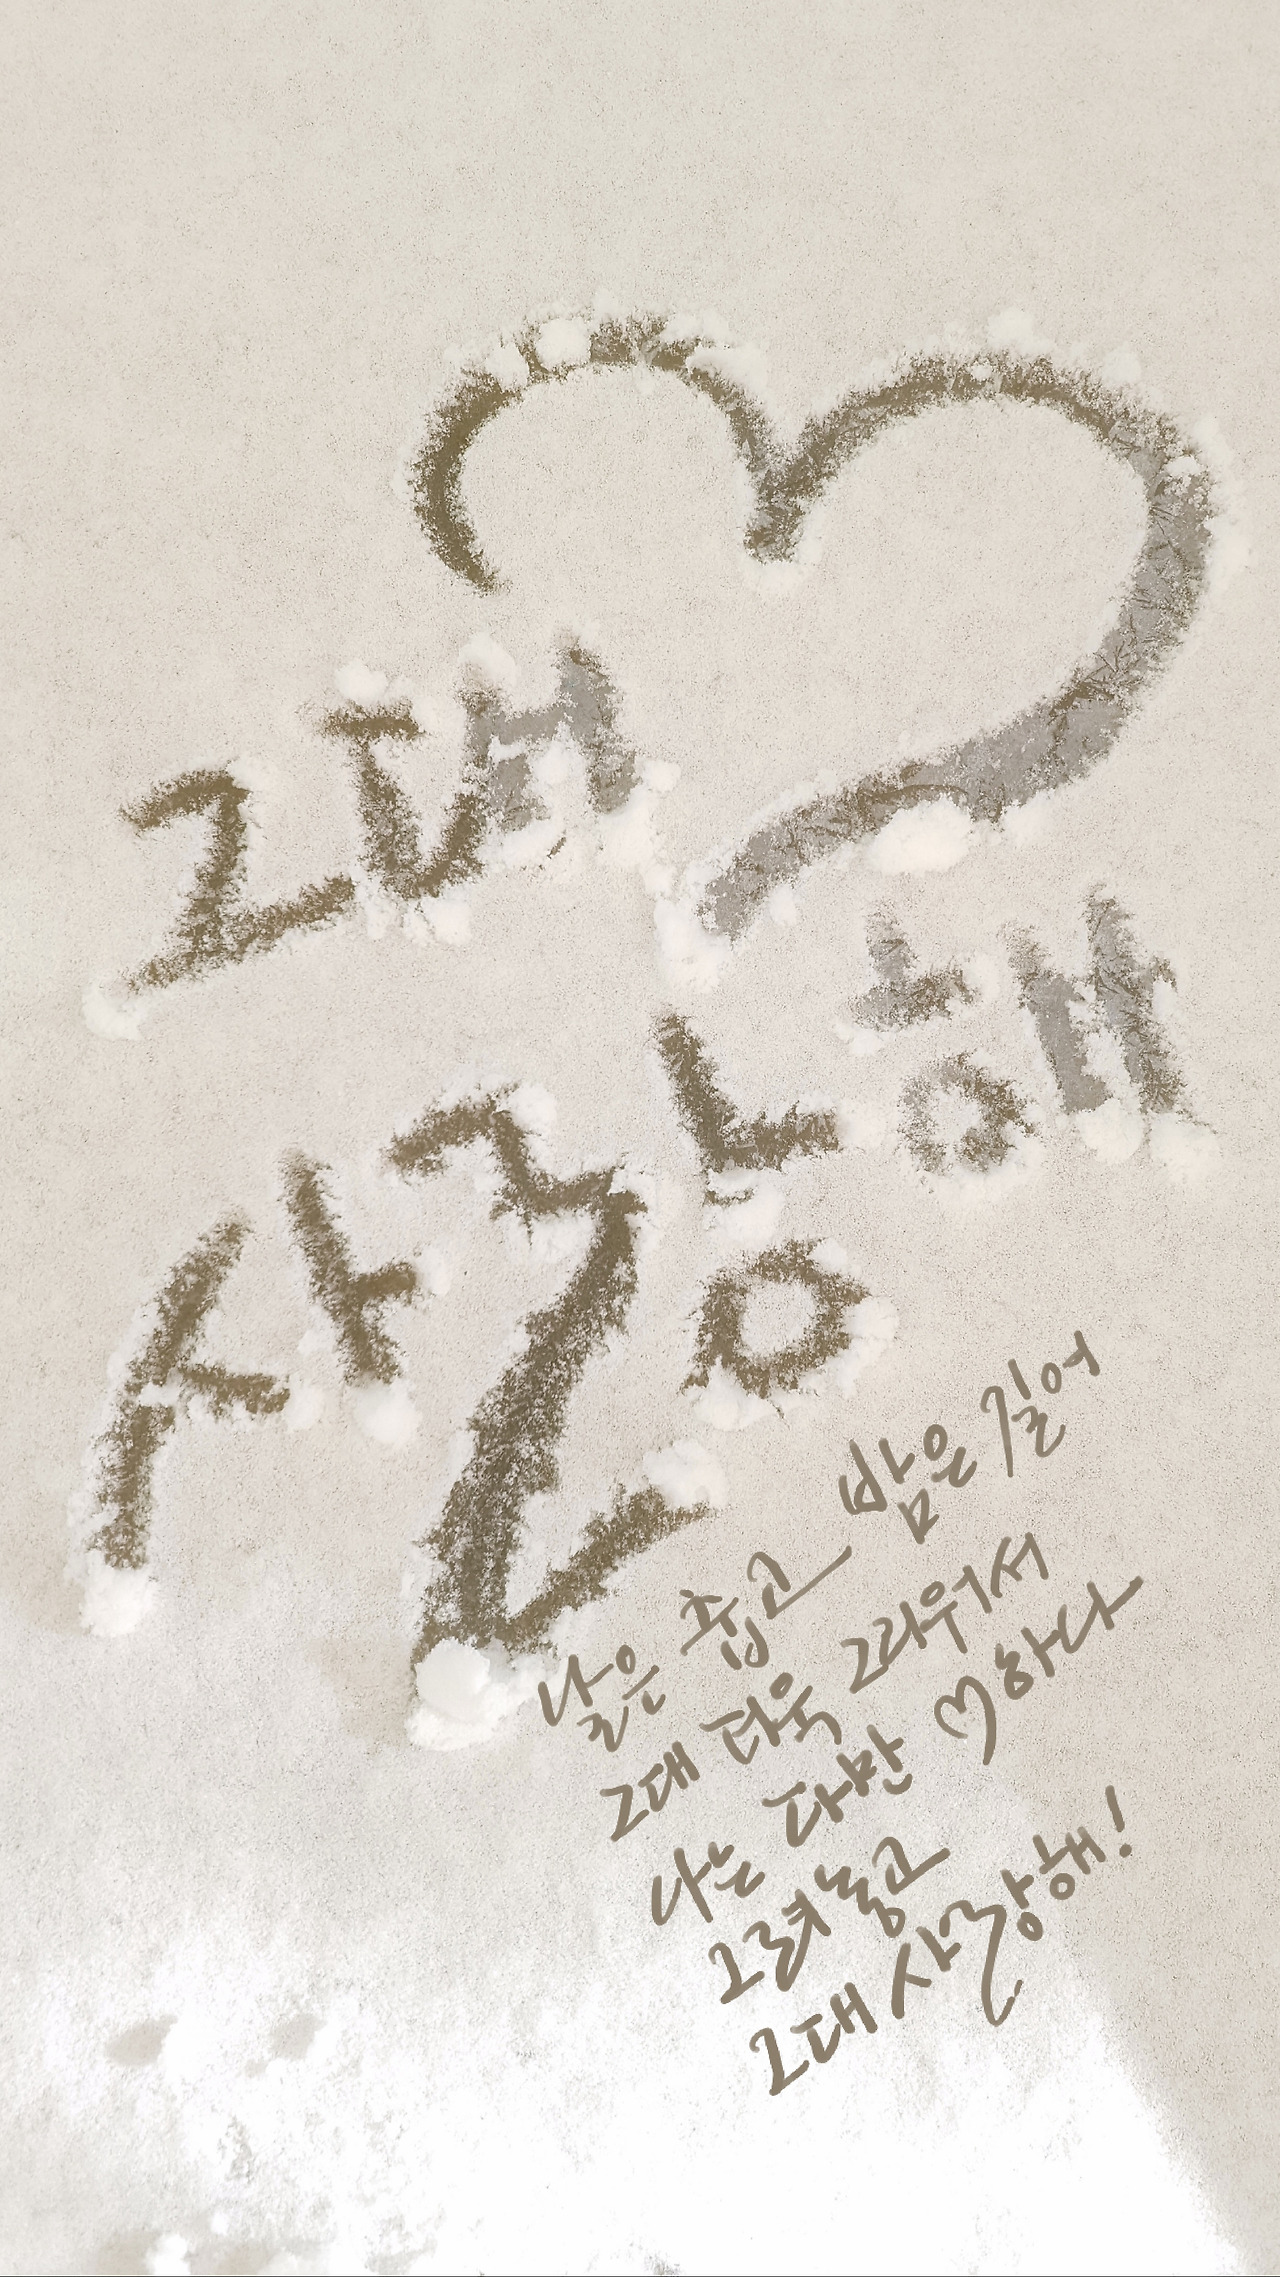 그대
사랑해
날은 춥고 밤은 길어
그대 더욱 그리워서
나는 다만 ♡하나
그려 놓고
그대 사랑해!